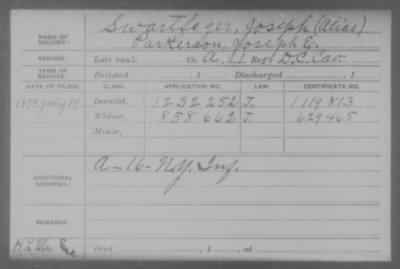 NAME OF SOLDIER: Swartfager, Joseph (Alias)
Parkerson, Joseph E.
SERVICE: Late rank, Co. A, 1 Reg't D.C. Cav.
TERM OF SERVICE: Enlisted , 1 Discharged , 1
DATE OF FILING. CLASS. APPLICATION NO. LAW. CERTIFICATE NO.
1899 July 19 Invalid, 1232252 J. 1119813
Widow, 858662 J. 629465
Minor,
ADDITIONAL SERVICES: A-16-N.Y. Inf.
REMARKS:
Died , 1 , at